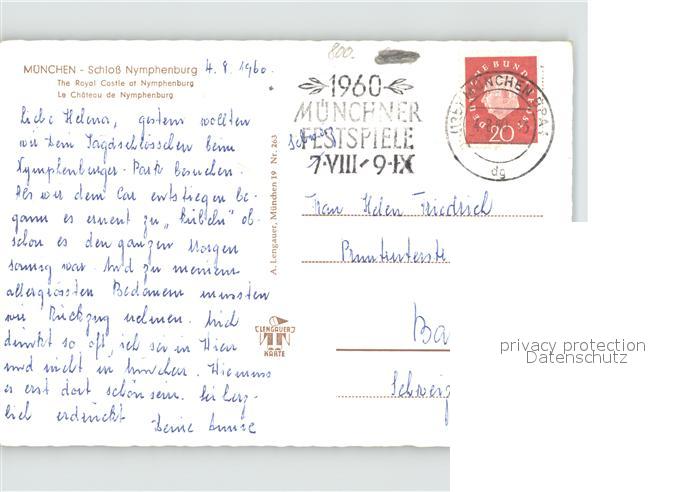 MÜNCHEN - Schloß Nymphenburg
The Royal Castle at Nymphenburg
Le Château de Nymphenburg
4. 8. 1960.
800.
1960
MÜNCHNER
FESTSPIELE
7·VIII - 9·IX
DEUTSCHE BUNDESPOST
20
dg
Liebe Helena, gestern wollten
wir dem Jagdschlösschen beim
Nymphenburger-Park besuchen.
Als wir dem Car entstiegen be-
gann es erneut zu "kübeln" ob-
schon es den ganzen Morgen
sonnig war. Und zu meinem
allergrössten Bedauern mussten
wir Rückzug nehmen. Mich
dünkt so oft, ich sei in Wien
und nicht in München. Wie muss
es erst dort schön sein. Sei herz-
lich erdrückt Deine
A. Lengauer, München 19 Nr. 263
LENGAUER
KARTE
Frau Helen Friedrich
Ba
Schweiz
privacy protection
Datenschutz